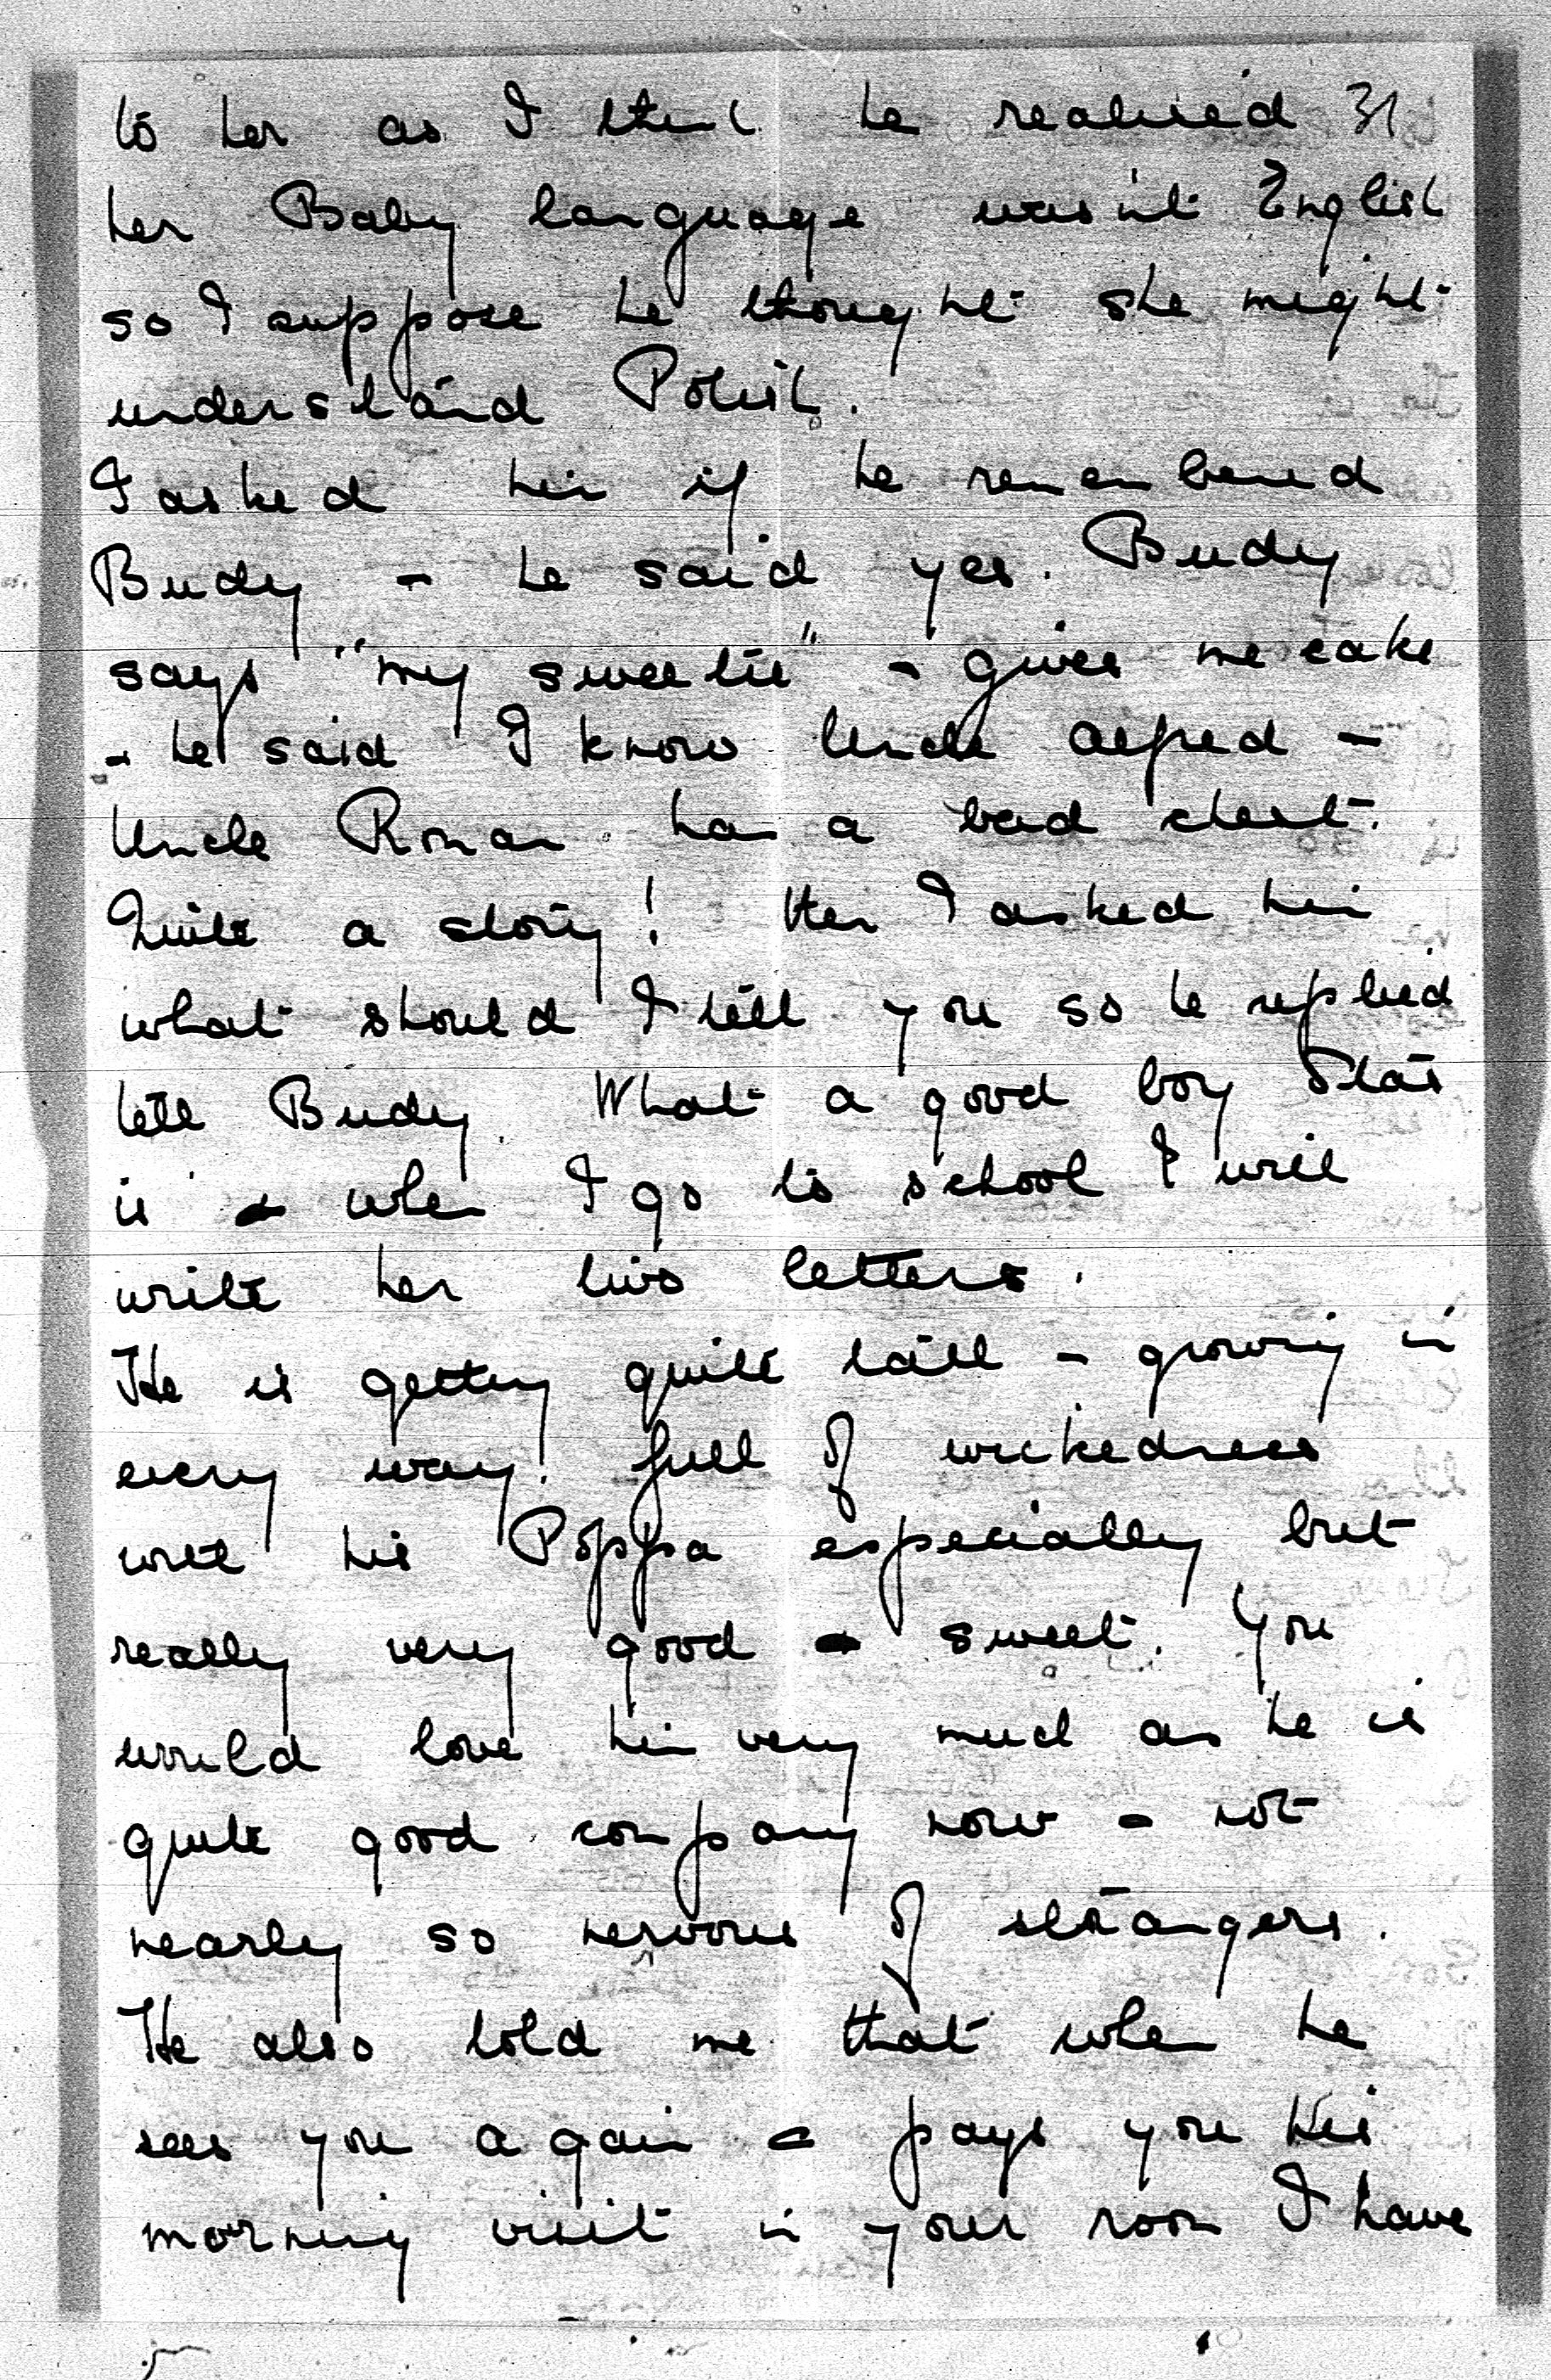 to her as I think he realised 31
her Baby language wasn't English
so I suppose he thought she might
understand Polish.
I asked him if he remembered
Budy - he said yes. Budy
says "my sweetie" - gives me cake
- he said I know Uncle Alfred -
Uncle Roman has a bad chest.
Quite a story! then I asked him
what should I tell you so he replied
tell Budy. What a good boy Stas
is - when I go to school I will
write her two letters.
He is getting quite tall - growing in
every way! full of wickedness
with his Poppa especially but
really very good - sweet. You
would love him very much as he is
quite good company now - not
nearly so nervous of strangers.
He also told me that when he
sees you again - pays you his
morning visit in your room I have